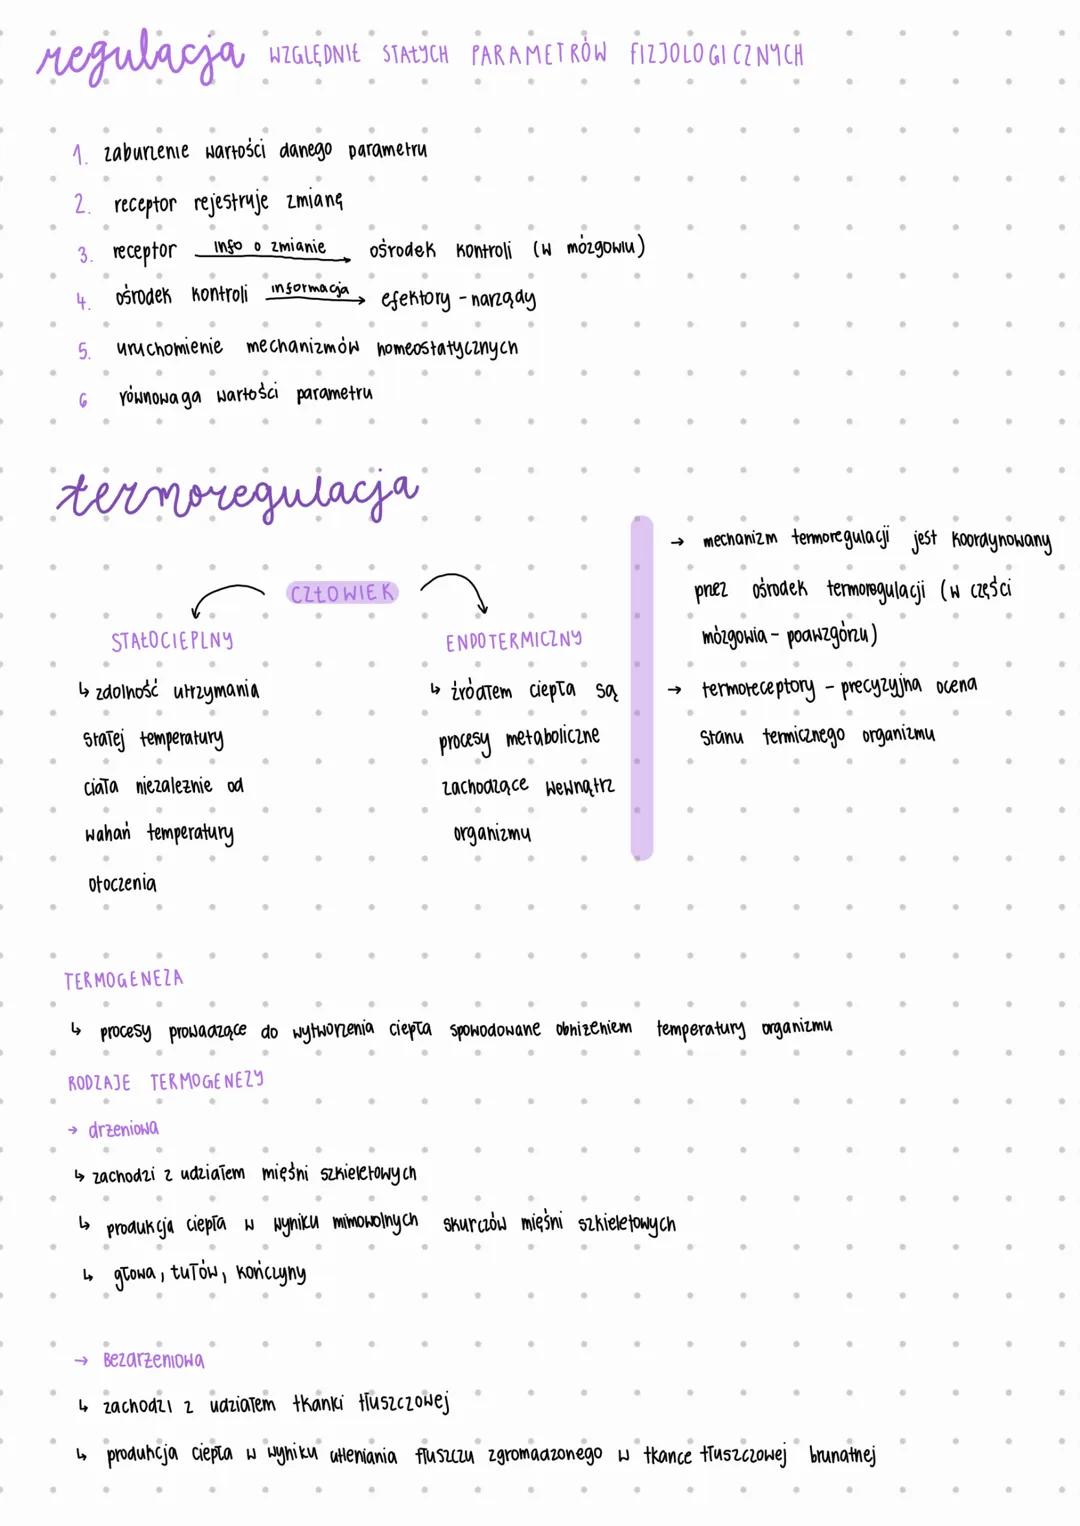 regulacja WZGLĘDNIE STAŁYCH PARAMETRÓW FIZJOLOGICZNYCH
1. zaburzenie wartości danego parametru
2. receptor rejestruje zmianę
3. receptor info o zmianie → ośrodek kontroli (w mózgowiu)
4. ośrodek kontroli informacja → efektory - narządy
5. uruchomienie mechanizmów homeostatycznych
6 równowaga wartości parametru
termoregulacja
CZŁOWIEK
STAŁOCIEPLNY
↳ zdolność utrzymania
stałej temperatury
ciała niezależnie od
wahań temperatury
otoczenia
ENDOTERMICZNY
↳ źródłem ciepła są
procesy metaboliczne
zachodzące wewnątrz
organizmu
→ mechanizm termoregulacji jest koordynowany
przez ośrodek termoregulacji (w części
mózgowia - podwzgórzu)
→ termoreceptory - precyzyjna ocena
stanu termicznego organizmu
TERMOGENEZA
↳ procesy prowadzące do wytworzenia ciepła spowodowane obniżeniem temperatury organizmu
RODZAJE TERMOGENEZY
→ drżeniowa
↳ zachodzi z udziałem mięśni szkieletowych
↳ produkcja ciepła w wyniku mimowolnych skurczów mięśni szkieletowych
↳ głowa, tułów, kończyny
→ Bezdrżeniowa
↳ zachodzi z udziałem tkanki tłuszczowej
↳ produkcja ciepła w wyniku utleniania tłuszczu zgromadzonego w tkance tłuszczowej brunatnej